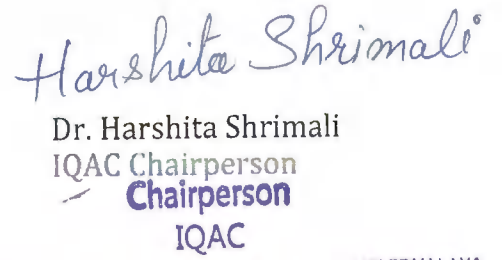 Harshita Shrimali
Dr. Harshita Shrimali
IQAC Chairperson
Chairperson
IQAC